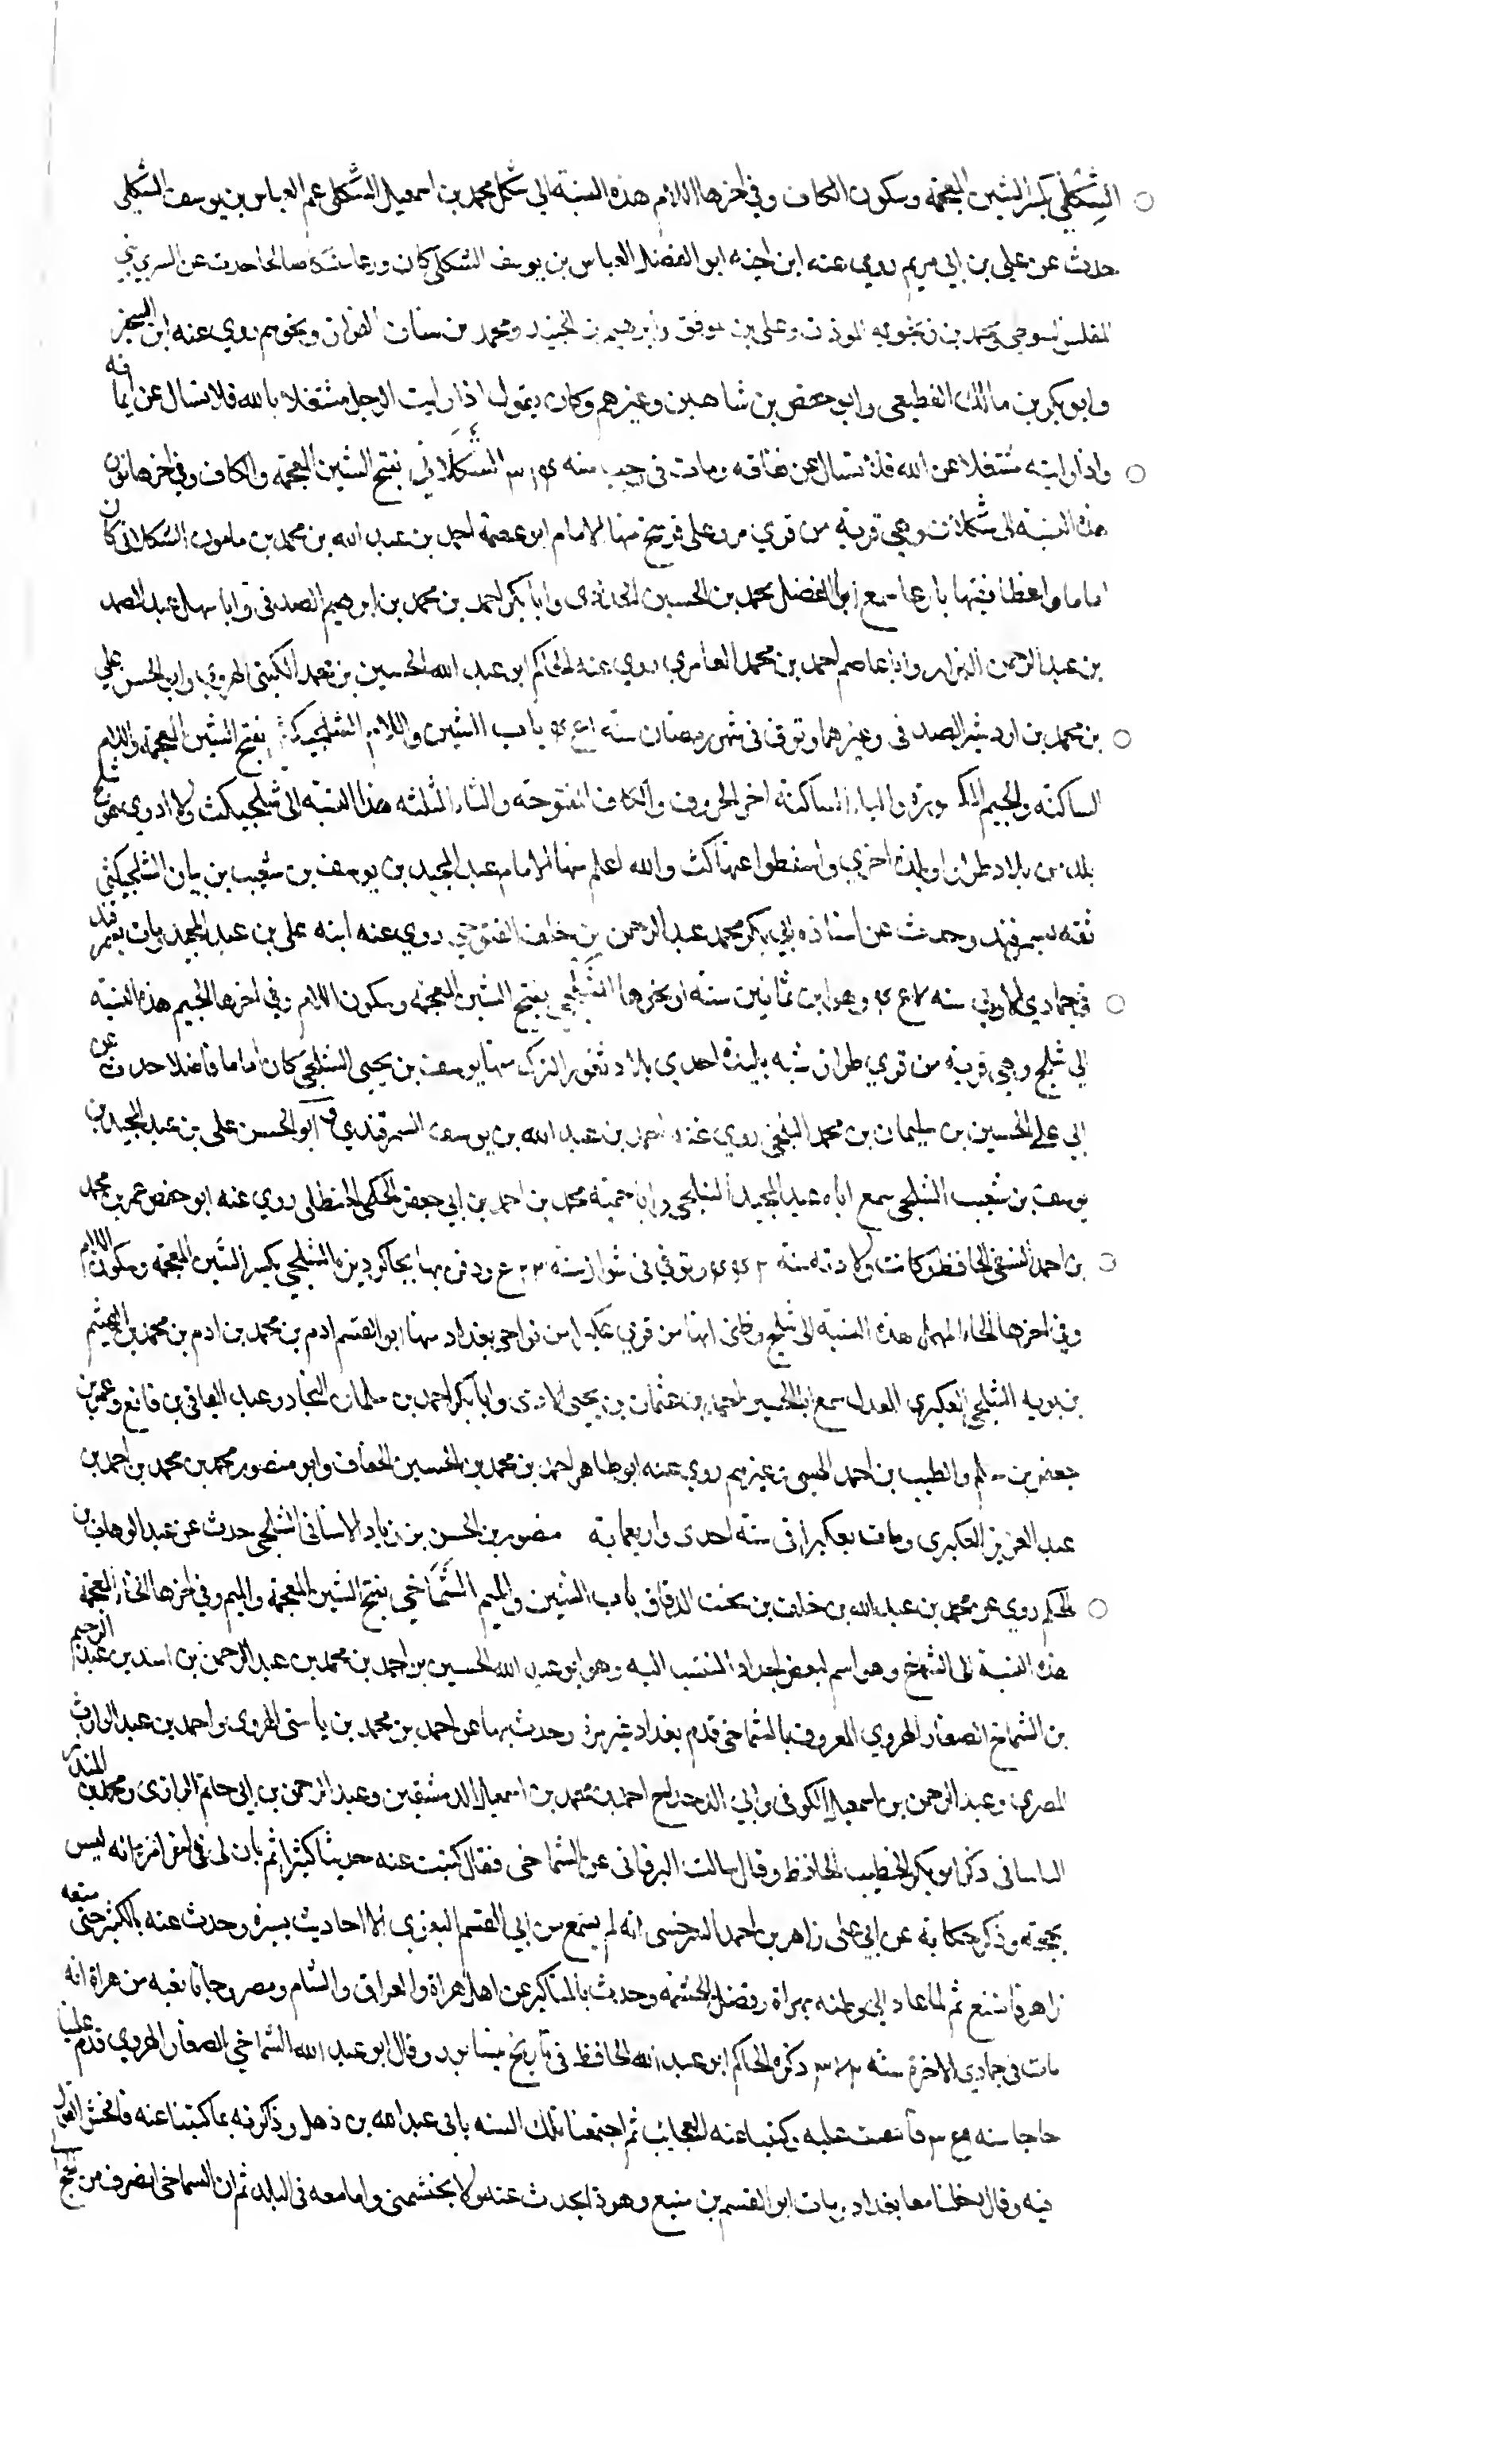 الشِكْلي بكسر الشين المعجمة وسكون الكاف وفي اخرها اللام هذه النسبة الى شكل محمد بن اسمعيل الشكلى عم العباس بن يوسف الشكلي
حدث عن علي بن ابي مريم روى عنه ابن اخيه ابو الفضل العباس بن يوسف الشكلي كان ورعا متنسكا صالحا حدث عن السري بن
المفلس السوحى ومحمد بن زنجويه المؤذن وعلى بن موفق وابرهيم بن الجنيد ومحمد بن سنان القزاز ونحوهم روي عنه ابن
وابو بكر بن مالك القطيعي وابو حفص بن شاهين وغيرهم وكان يقول اذا رايت الرجل مشتغلا بالله فلا تسال عن ايمانه
واذا رايته مشتغلا عن الله فلا تسال عن نفاقه ومات في رجب سنه ٣١٤ الشَّكَلَاني بفتح الشين المعجمة والكاف وفي اخرها نون
هذه النسبة الى شكلان وهي قرية من قري مرو على فرسخ منها الامام ابو عصمة احمد بن عبد الله بن محمد بن مامون الشكلانى كان
اماما واعظا فقيها بارعا سمع ابا الفضل محمد بن الحسين الحدادى وابا بكر احمد بن محمد بن ابرهيم الصدفى وابا سهل عبد الصمد
بن عبد الرحمن البزار وابا عاصم احمد بن محمد العامري روي عنه الحاكم ابو عبد الله الحسين بن محمد الكتبى الهروي وابو الحسن علي
بن محمد بن اردشير الصدفى وغيرهما وتوفى فى شهر رمضان سنة باب الشين واللام الشلجيكثي بفتح الشين المعجمة واللام
الساكنة والجيم المكسورة والياء الساكنة اخر الحروف والكاف المفتوحة والثاء المثلثة هذه النسبة الى شلجيكث ولا ادري هو شلج
بلد من بلاد طراز او بلدة اخري واسقطوا عنها كث والله اعلم منها الامام عبد المجيد بن يوسف بن شعيب بن بيان الشلجيكثي
ثقه بسمرقند وحدث عن استاذه ابي بكر محمد عبد الرحمن بن خلف روي عنه ابنه على بن عبد المجيد مات بسمرقند
في جمادي الاولي سنه وهو ابن ثمانين سنة او نحوها الشَّلْجي بفتح الشين المعجمة وسكون اللام وفي اخرها الجيم هذه النسبة
الي شلج وهي قرية من قري طراز شبه بليدة احدي بلاد ثغور الترك منها يوسف بن يحيى الشلجي كان اماما فاضلا حدث عن
ابي علي الحسين بن سليمان بن محمد البلخي روي عنه احمد بن عبد الله بن يوسف السمرقندي و ابو الحسن على بن عبد المجيد بن
يوسف بن شعيب الشلجى سمع اباه عبد المجيد الشلجي وابا محمد بن احمد بن ابي جعفر الحكمي الحنظلى روي عنه ابو حفص عمر بن محمد
بن احمد النسفي الحافظ وكانت ولادته سنة وتوفي فى شوال سنه ودفن بها بجاكرديزه الشلجي بكسر الشين المعجمة وسكون اللام
وفي اخرها الحاء المهملة هذه النسبة الى شلح وظنى انها من قرى عكبرا من نواحى بغداد منها ابو القسم ادم بن محمد بن ادم بن محمد بن الهيثم
بن توبه الشلحي العكبري المعدل سمع ابا الحسين احمد بن عثمان بن يحيى الادمى وابا بكر احمد بن سلمان النجاد وعبد الباقى بن قانع وعمر بن
جعفر بن سلم والطيب بن احمد وغيرهم روي عنه ابو طاهر احمد بن محمد بن الحسين الخفاف وابو منصور محمد بن محمد بن احمد بن
عبد العزيز العكبرى ومات بعكبرا فى سنة احدى واربعماية منصور بن الحسن بن زياد الاسانى الشلجي حدث عن عبد الوهاب بن
الحكم روي عن محمد بن عبد الله بن خلف بن بخت الدقاق باب الشين والميم الشَّمَّاخي بفتح الشين المعجمة والميم وفي اخرها الخاء المعجمة
هذه النسبة الى الشماخ وهو اسم لبعض اجداد المنتسب اليه وهو ابو عبد الله الحسين بن احمد بن محمد بن عبد الرحمن بن اسد بن عبد الرحيم
بن الشماخ الصفار الهروي المعروف بالشماخى قدم بغداد غير مرة وحدث بها عن احمد بن محمد بن ياسين الهروي واحمد بن عبد الوارث
المصري وعبد الرحمن بن اسمعيل الكوفى وابي الدحداح احمد بن محمد بن اسمعيل الدمشقيين وعبد الرحمن بن ابي حاتم الرازى ومحمد بن المنذر
الباسانى ذكره ابو بكر الخطيب الحافظ وقال سالت البرقانى عن الشماخى فقال كتبت عنه حديثا كثيرا ثم بان لى فى اخر امره انه ليس
بحجة وذكر حكاية عن ابي على زاهر بن احمد السرخسى انه لم يسمع من ابي القسم البغوي الا احاديث يسيرة وحدث عنه بالكثير حتى منعه
زاهر وامتنع ثم لما عاد الي وطنه بهراة رفض الحشمة وحدث بالمناكير عن اهل هراة والعراق والشام ومصر وجانا نعيه من هراة انه
مات فى جمادي الاخرة سنه ٣٧٢ ذكره الحاكم ابو عبد الله الحافظ فى تاريخ نيسابور وقال ابو عبد الله الشماخي الصفار الهروي قدم علينا
حاجا سنه فانتقيت عليه وكتبنا عنه العجايب ثم اجتمعنا تلك السنه بابى عبد الله بن ذهل وذاكرته بما كتبنا عنه فافحش القول
فيه وقال دخلنا معا بغداد ومات ابو القسم بن منيع وهوذا يحدث عنه ولا يحتشمنى وانا معه فى البلد ثم ان الشماخى انصرف من الحج